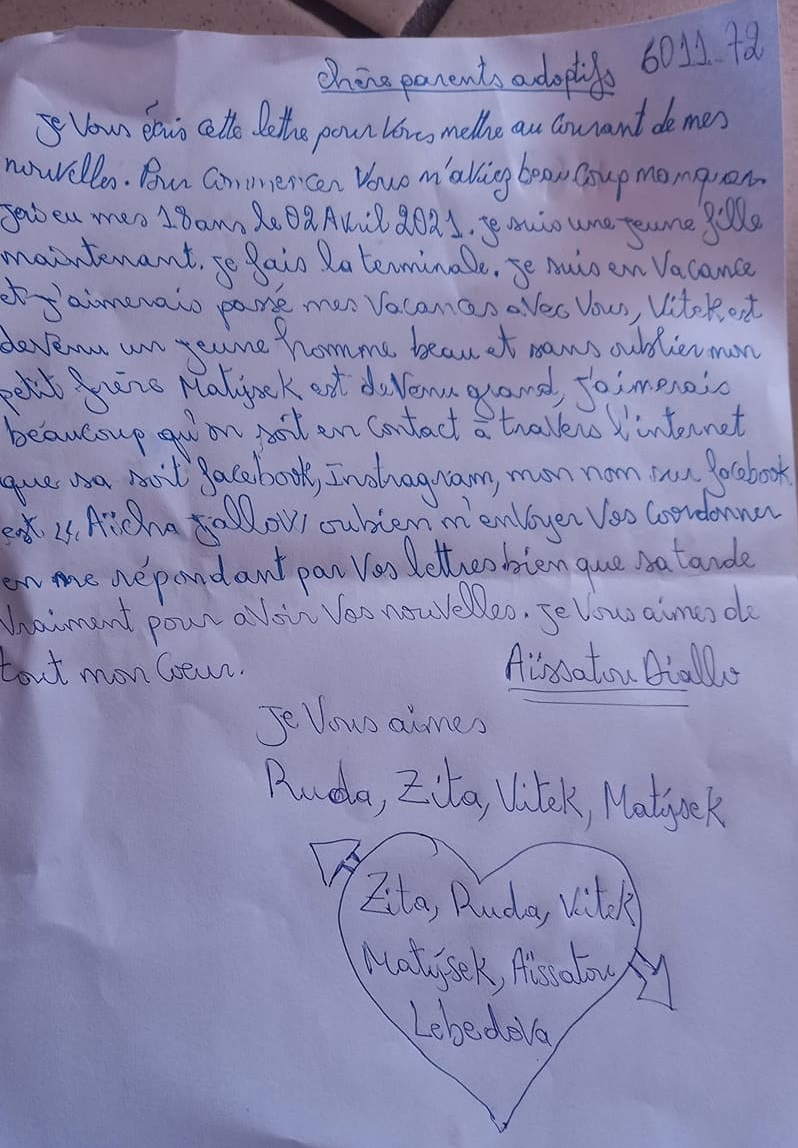 chère parents adoptifs 6011-72
Je Vous écris cette lettre pour Vous mettre au Courant de mes
nouvelles. Pour Commencer Vous m'aviez beau Coup manquer
Jai eu mes 18ans le 02 Avril 2021. Je suis une jeune fille
maintenant. Je fais la terminale. Je suis en Vacance
et J'aimerais passé mes Vacances avec Vous, Vitek est
devenu un jeune homme beau et sans oublier mon
petit frère Matýsek est devenu grand, J'aimerais
beaucoup qu'on soit en Contact à travers l'internet
que sa soit facebook, Instragram, mon nom sur facebook
est Aïcha Jallow oubien m'envoyer Vos Coordonner
en me répondant par Vos lettres bien que sa tarde
Vraiment pour avoir Vos nouvelles. Je Vous aimes de
tout mon Coeur. Aïssatou Diallo
Je Vous aimes
Ruda, Zita, Vitek, Matýsek
Zita, Ruda, Vitek
Matýsek, Aïssatou
Lebedova